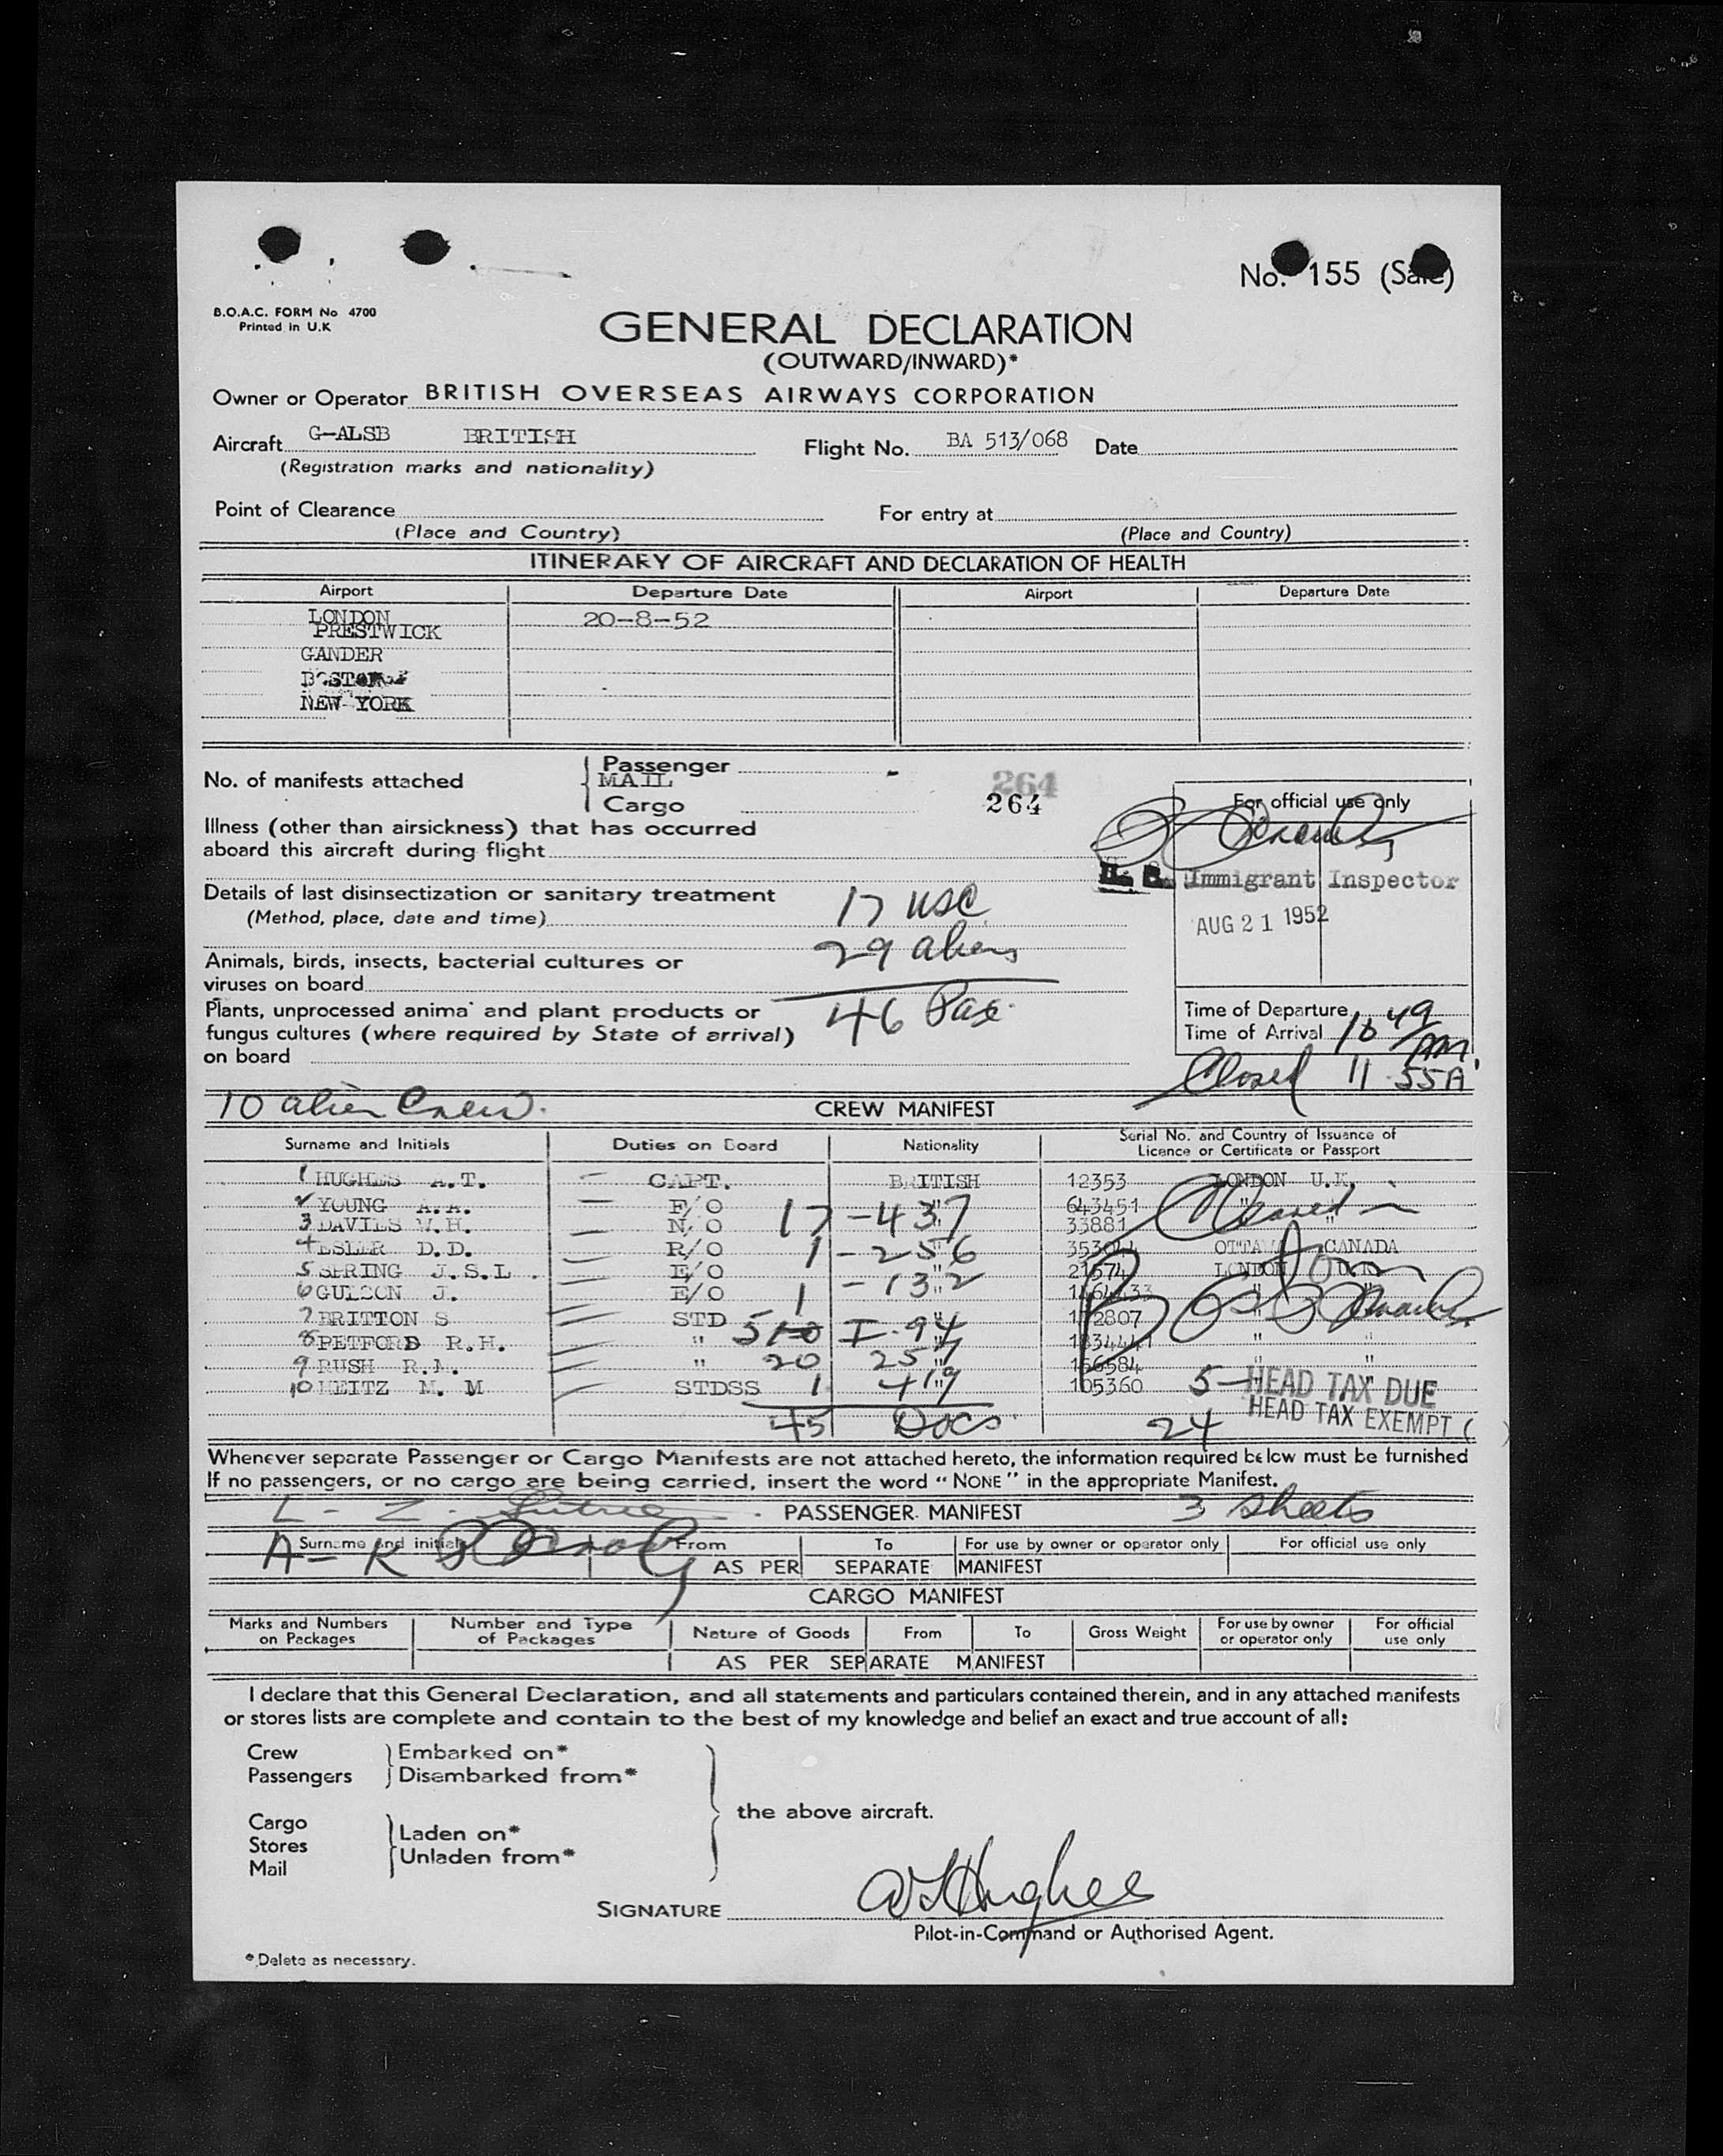 No. 155 (Sale)
B.O.A.C. FORM No 4700
Printed in U.K
GENERAL DECLARATION
(OUTWARD/INWARD)*
Owner or Operator BRITISH OVERSEAS AIRWAYS CORPORATION
Aircraft G-ALSB BRITISH Flight No. BA 513/068 Date
(Registration marks and nationality)
Point of Clearance For entry at
(Place and Country) (Place and Country)
ITINERARY OF AIRCRAFT AND DECLARATION OF HEALTH
Airport Departure Date Airport Departure Date
LONDON 20-8-52
PRESTWICK
GANDER
BOSTON
NEW YORK
No. of manifests attached
Passenger -
MAIL
Cargo
264
264
For official use only
Illness (other than airsickness) that has occurred
aboard this aircraft during flight
Immigrant Inspector
AUG 21 1952
Details of last disinsectization or sanitary treatment
(Method, place, date and time)
17 USC
29 aliens
46 Pax.
Animals, birds, insects, bacterial cultures or
viruses on board
Plants, unprocessed anima' and plant products or
fungus cultures (where required by State of arrival)
on board
Time of Departure
Time of Arrival 10 49 AM.
Closed 11.55A
10 alien Crew.
CREW MANIFEST
Surname and Initials Duties on Board Nationality Serial No. and Country of Issuance of
Licence or Certificate or Passport
1 HUGHES A.T. CAPT. BRITISH 12353 LONDON U.K.
2 YOUNG A.A. F/O " 643451 "
3 DAVIES W.H. N/O " 33881 "
4 ESLER D.D. R/O " OTTAWA CANADA
5 SPRING J.S.L. E/O " LONDON U.K.
6 GULSON J. E/O "
7 BRITTON S STD "
8 PETFORD R.H. " "
9 RUSH R.A. " " 156584 "
10 HEITZ M. M STDSS " 105360 "
17 - 437
1 - 256
1 - 132
5 I-94
20 257
1 419
45 Docs
Cleared in
5 - HEAD TAX DUE
24 HEAD TAX EXEMPT ( )
Whenever separate Passenger or Cargo Manifests are not attached hereto, the information required below must be furnished
If no passengers, or no cargo are being carried, insert the word "NONE" in the appropriate Manifest.
L - Z - PASSENGER MANIFEST 3 sheets
A - K
Surname and initials From To For use by owner or operator only For official use only
AS PER SEPARATE MANIFEST
CARGO MANIFEST
Marks and Numbers on Packages Number and Type of Packages Nature of Goods From To Gross Weight For use by owner or operator only For official use only
AS PER SEPARATE MANIFEST
I declare that this General Declaration, and all statements and particulars contained therein, and in any attached manifests
or stores lists are complete and contain to the best of my knowledge and belief an exact and true account of all:
Crew
Passengers
Embarked on*
Disembarked from*
Cargo
Stores
Mail
Laden on*
Unladen from*
the above aircraft.
SIGNATURE A T Hughes
Pilot-in-Command or Authorised Agent.
*Delete as necessary.